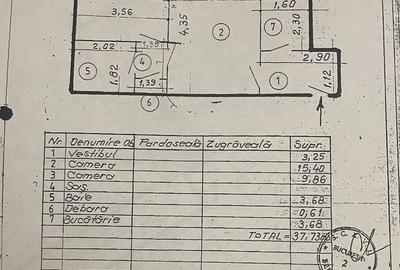 3,56
1,60
4,35
2
7
2,30
2,02
1,39
2,90
5
1,82
4
1,39
1
1,12
6
Nr Denumire Pardoseală Zugrăveală Supr.
1 Vestibul 3,25
2 Camera 15,40
3 Camera 9,86
4 Sas.
5 Baie 3,68
6 Debara 0,61
7 Bucătărie 3,68
TOTAL= 37,73
BUCUREȘTI
2